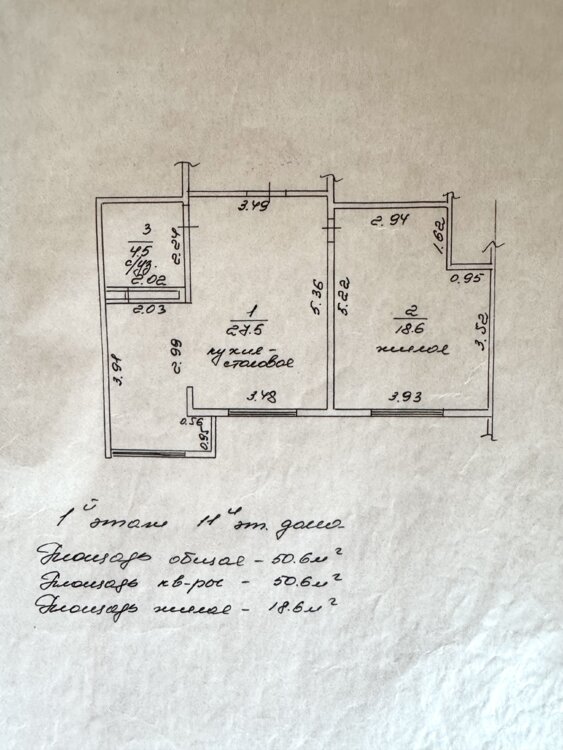 3.49
2.94
1.62
3
4.5
с/уз.
2.24
2.02
0.95
2.03
1
27.5
кухня-
столовое
5.36
5.22
2
18.6
жилое
3.52
3.91
2.99
3.48
3.93
0.56
0.95
1й этаж 11и эт. дома
Площадь общая - 50.6 м²
Площадь кв-ры - 50.6 м²
Площадь жилая - 18.6 м²